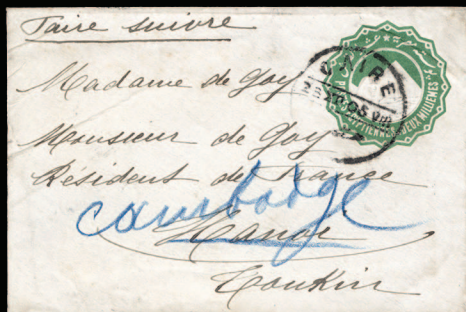 Faire suivre
Madame de Goy
Monsieur de Goy
Résident de France
Cambodge
Hanoï
Tonkin
CAIRE
DEUX MILLIEMES